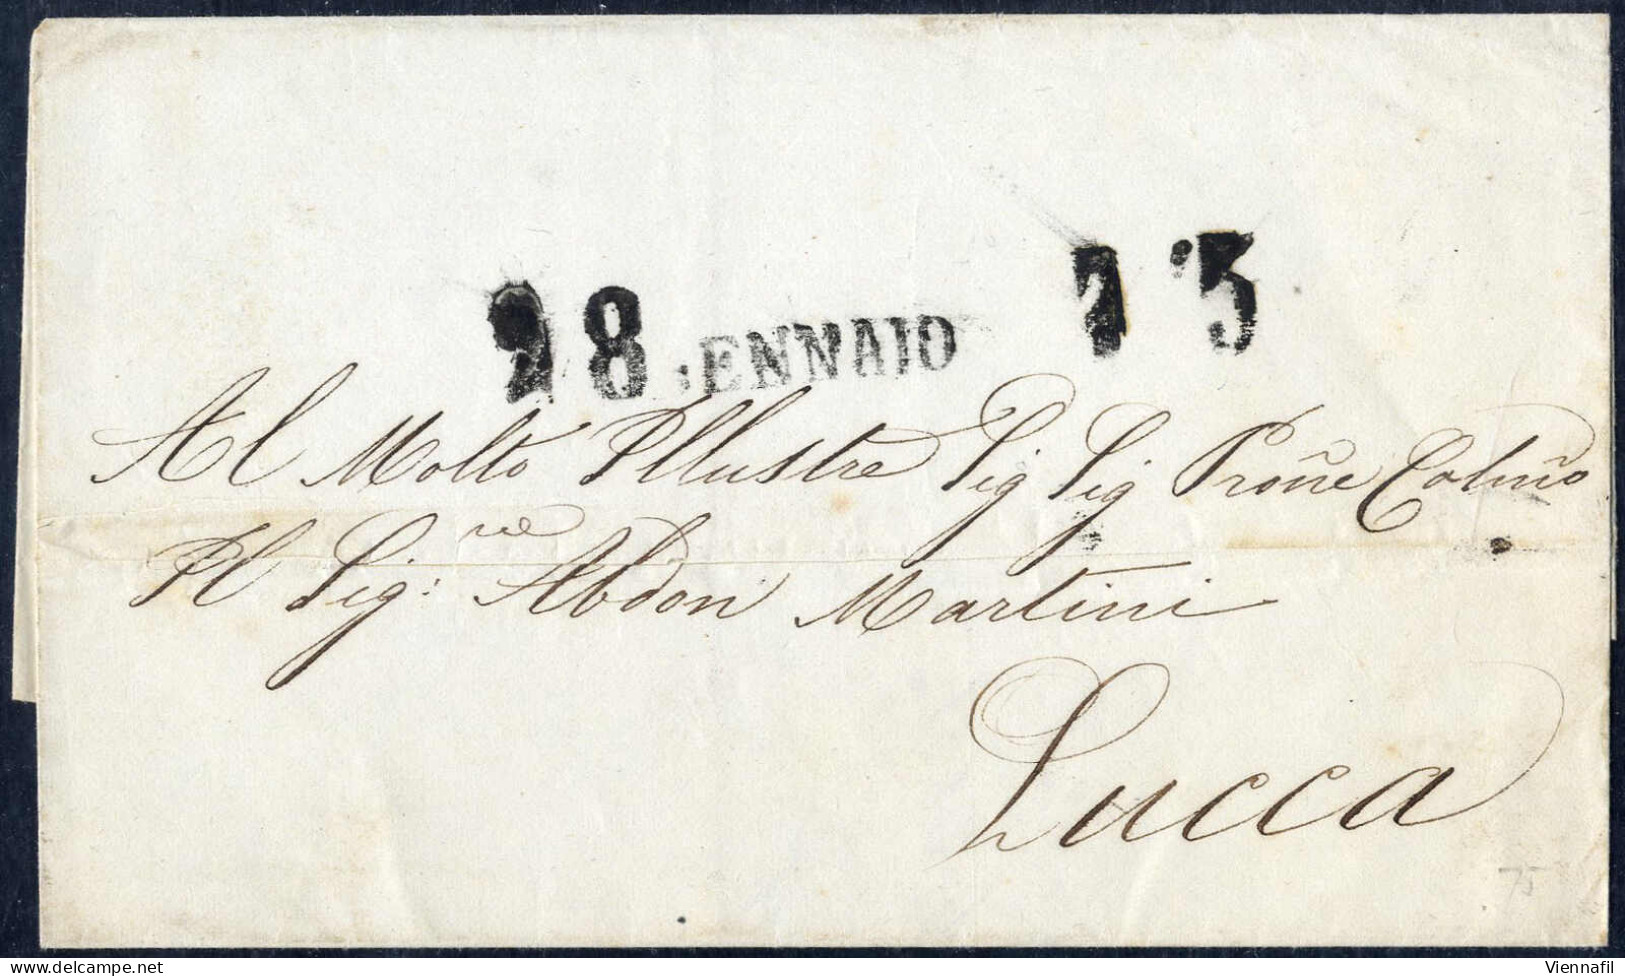 28 ENNAIO
Al Molto Illustre Sig Sig Prone Colmo
Al Sig: re Abdon Martini
Lucca
75
delcampe.net
Viennafil